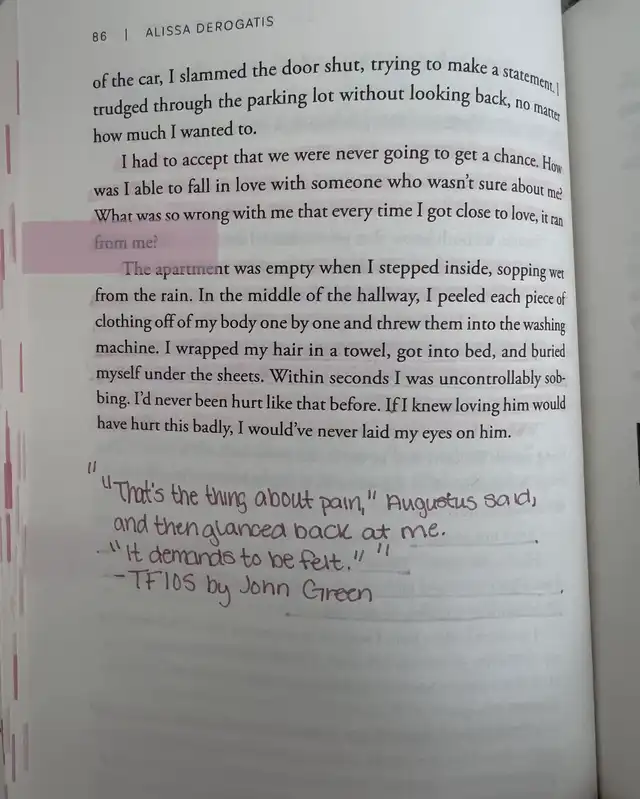 86 | ALISSA DEROGATIS
of the car, I slammed the door shut, trying to make a statement. I
trudged through the parking lot without looking back, no matter
how much I wanted to.
I had to accept that we were never going to get a chance. How
was I able to fall in love with someone who wasn't sure about me?
What was so wrong with me that every time I got close to love, it ran
from me?
The apartment was empty when I stepped inside, sopping wet
from the rain. In the middle of the hallway, I peeled each piece of
clothing off of my body one by one and threw them into the washing
machine. I wrapped my hair in a towel, got into bed, and buried
myself under the sheets. Within seconds I was uncontrollably sob-
bing. I'd never been hurt like that before. If I knew loving him would
have hurt this badly, I would've never laid my eyes on him.
" "That's the thing about pain," Augustus said,
and then glanced back at me.
"It demands to be felt." "
- TFIOS by John Green